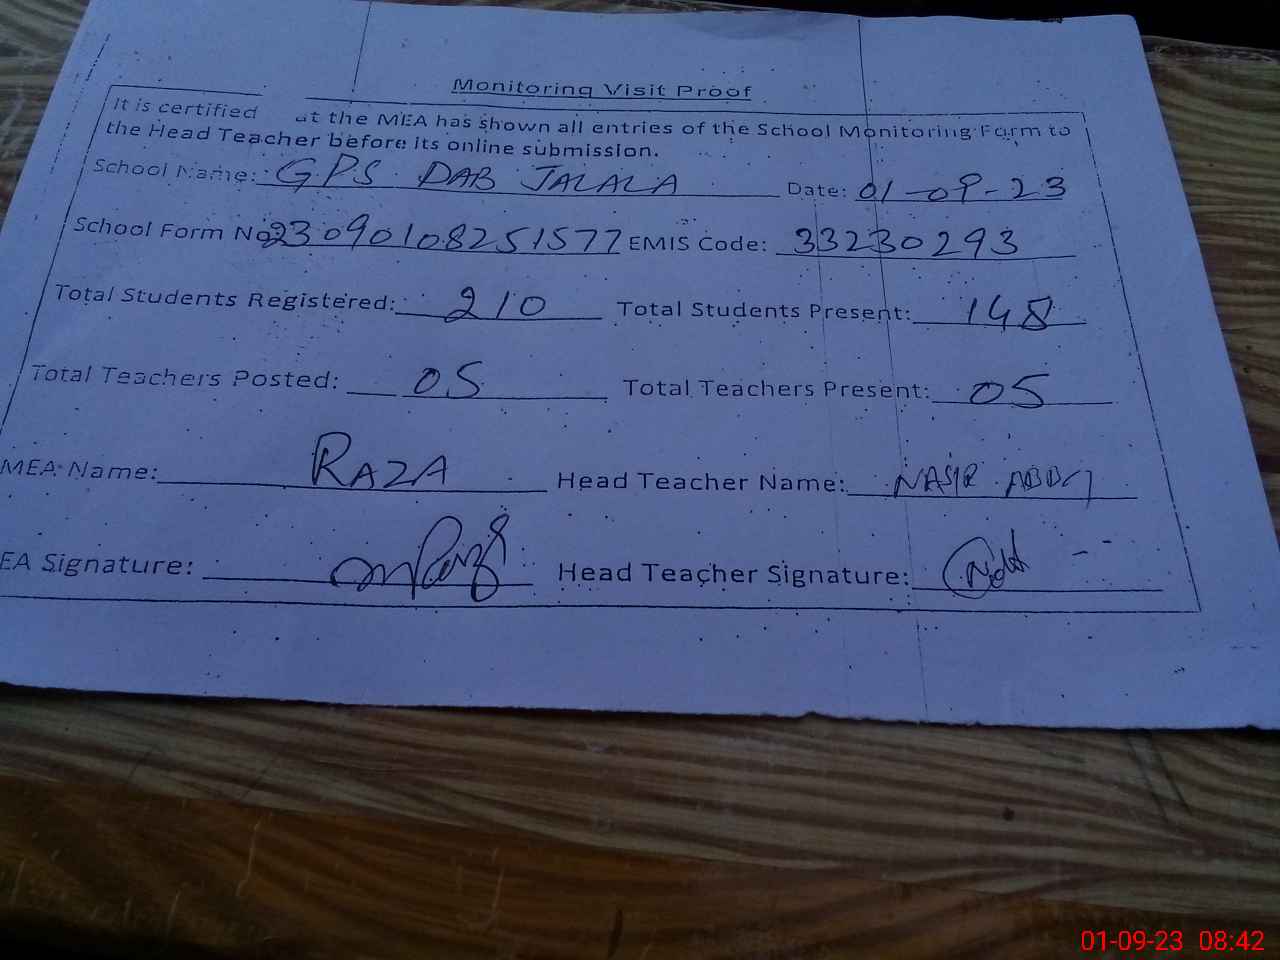 Monitoring Visit Proof
It is certified at the MEA has shown all entries of the School Monitoring Form to
the Head Teacher before its online submission.
School Name: GPS DAB JALALA Date: 01-09-23
School Form No 23090108251577 EMIS Code: 33230293
Total Students Registered: 210 Total Students Present: 148
Total Teachers Posted: 05 Total Teachers Present: 05
MEA Name: RAZA Head Teacher Name: NASIR
EA Signature: Head Teacher Signature:
01-09-23 08:42